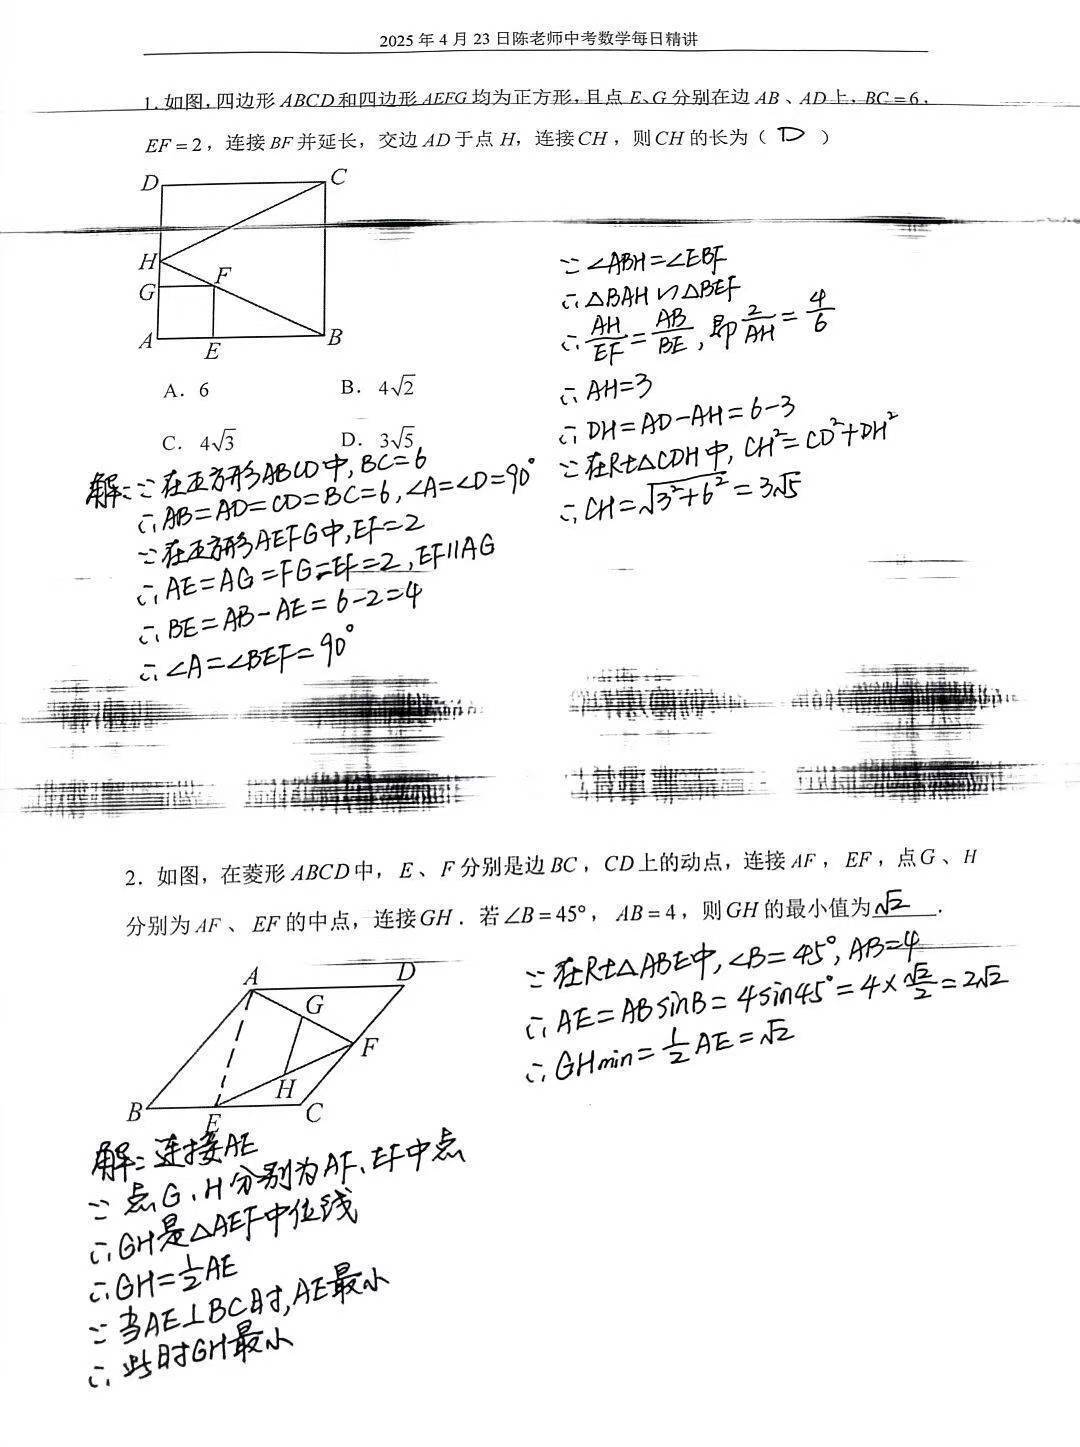 2025 年 4 月 23 日陈老师中考数学每日精讲
1. 如图, 四边形 ABCD 和四边形 AEFG 均为正方形, 且点 E、G 分别在边 AB 、AD 上, BC = 6 ,
EF = 2 , 连接 BF 并延长, 交边 AD 于点 H, 连接 CH , 则 CH 的长为 ( D )
D C
H F
G
A E B
A. 6 B. 4√2
C. 4√3 D. 3√5
解:∵在正方形ABCD中,BC=6
∴AB=AD=CD=BC=6,∠A=∠D=90°
∵在正方形AEFG中,EF=2
∴AE=AG=FG=EF=2,EF∥AG
∴BE=AB-AE=6-2=4
∴∠A=∠BEF=90°
∵∠ABH=∠EBF
∴△BAH∽△BEF
∴AH/EF=AB/BE,即2/AH=4/6
∴AH=3
∴DH=AD-AH=6-3
∵在Rt△CDH中,CH²=CD²+DH²
∴CH=√(3²+6²)=3√5
2. 如图, 在菱形 ABCD 中, E 、F 分别是边 BC , CD 上的动点, 连接 AF , EF , 点 G 、H
分别为 AF 、EF 的中点, 连接 GH . 若 ∠B = 45° , AB = 4 , 则 GH 的最小值为 √2 .
A D
G
F
H
B E C
解:连接AE
∵点G、H分别为AF、EF中点
∴GH是△AEF中位线
∴GH=1/2AE
∵当AE⊥BC时,AE最小
∴此时GH最小
∵在Rt△ABE中,∠B=45°,AB=4
∴AE=ABsinB=4sin45°=4×√2/2=2√2
∴GHmin=1/2AE=√2